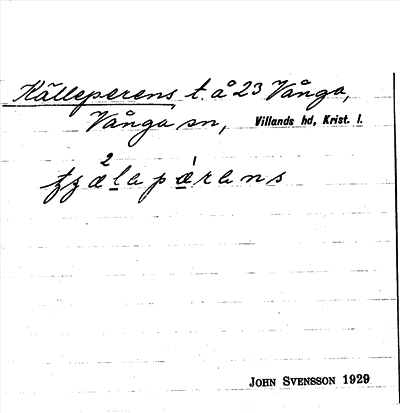 Källeperens t. å 23 Vånga,
Vånga sn, Villands hd, Krist. l.
tʒä²lapä̀rans
JOHN SVENSSON 1929